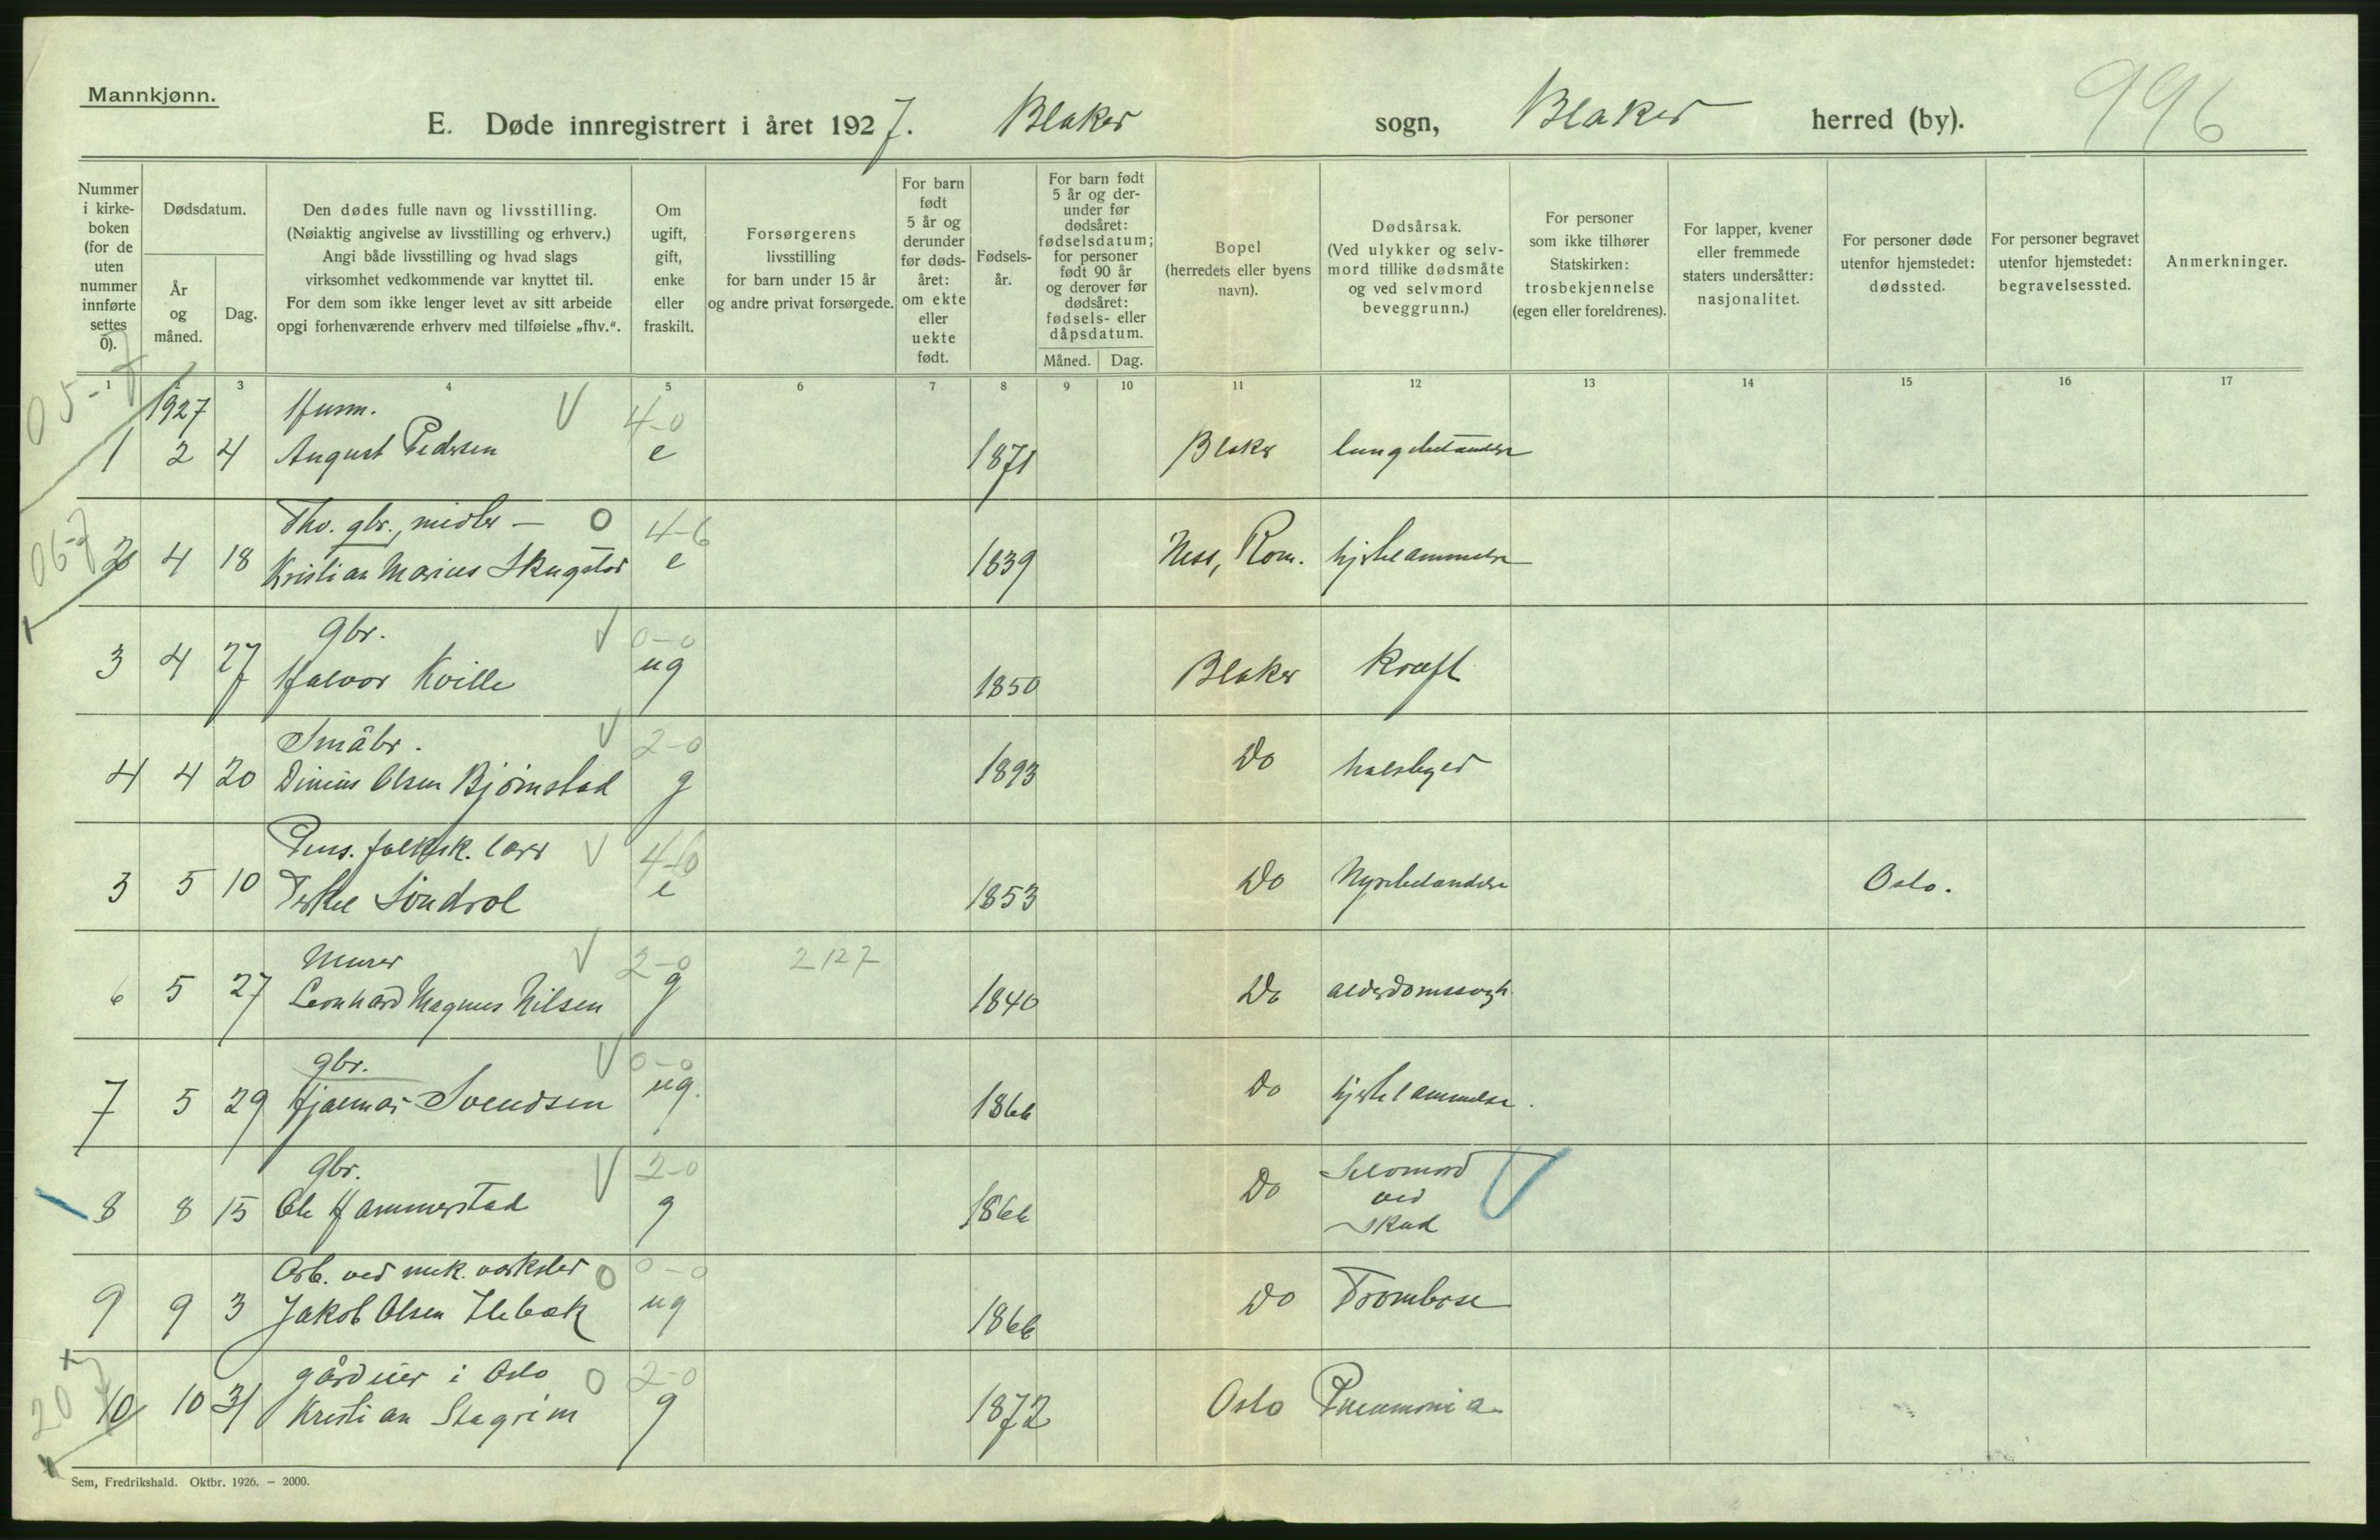 Mannkjønn.
E. Døde innregistrert i året 1927. Blaker sogn, Blaker herred (by). 996
Nummer i kirke-boken (for de uten nummer innførte settes 0).
Dødsdatum.
År og måned.
Dag.
Den dødes fulle navn og livsstilling.
(Nøiaktig angivelse av livsstilling og erhverv.)
Angi både livsstilling og hvad slags
virksomhet vedkommende var knyttet til.
For dem som ikke lenger levet av sitt arbeide
opgi forhenværende erhverv med tilføielse „fhv.“.
Om ugift, gift, enke eller fraskilt.
Forsørgerens
livsstilling
for barn under 15 år
og andre privat forsørgede.
For barn født 5 år og derunder før døds-året: om ekte eller uekte født.
Fødsels-år.
For barn født 5 år og der-under før dødsåret: fødselsdatum; for personer født 90 år og derover før dødsåret: fødsels- eller dåpsdatum.
Måned. Dag.
Bopel
(herredets eller byens
navn).
Dødsårsak.
(Ved ulykker og selv-
mord tillike dødsmåte
og ved selvmord
beveggrunn.)
For personer
som ikke tilhører
Statskirken:
trosbekjennelse
(egen eller foreldrenes).
For lapper, kvener
eller fremmede
staters undersåtter:
nasjonalitet.
For personer døde
utenfor hjemstedet:
dødssted.
For personer begravet
utenfor hjemstedet:
begravelsessted.
Anmerkninger.
1 2 3 4 5 6 7 8 9 10 11 12 13 14 15 16 17
05-7
1927 Husm. 4-0
1 2 4 August Pedersen e 1871 Blaker lungebetændelse
06-7
Fhv. gbr., midler — 0 4-6
2 4 18 Kristian Marius Skugstor e 1839 Ness, Rom. hjertelammelse
gbr. 0-0
3 4 27 Halvor Kville ug 1850 Blaker Kræft
Småbr. 2-0
4 4 20 Olsen Bjørnstad g 1893 Do
Pens. folkesk. lærer 4-0
3 5 10 Terkel Søndrol e 1853 Do Nyrebetændelse Oslo.
Murer 2-0 2127
6 5 27 Leonhard Magnus Nilsen g 1840 Do alderdomssvagh.
gbr. 0-0
7 5 29 Hjalmar Svendsen ug. 1866 Do hjertelammelse.
Gbr. 2-0
8 8 15 Ole Hammerstad g 1866 Do Selvmord
ved
skud
Arb. ved mek. verksted 0 0-0
9 9 3 Jakob Olsen Ilebæk ug 1866 Do Trombose
20
gårdeier i Oslo 0 2-0
10 10 31 Kristian Stagrim g 1872 Oslo Pneumonia
Sem, Fredrikshald. Oktbr. 1926. – 2000.